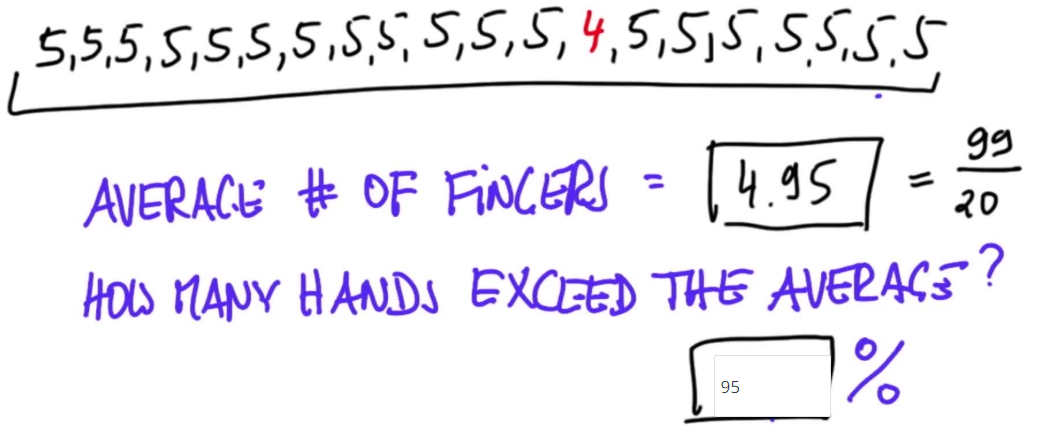 5,5,5,5,5,5,5,5,5,5,5,5,4,5,5,5,5,5,5,5
AVERAGE # OF FiNGERS = 4.95 = 99/20
HOW MANY HANDS EXCEED THE AVERAGE?
95 %